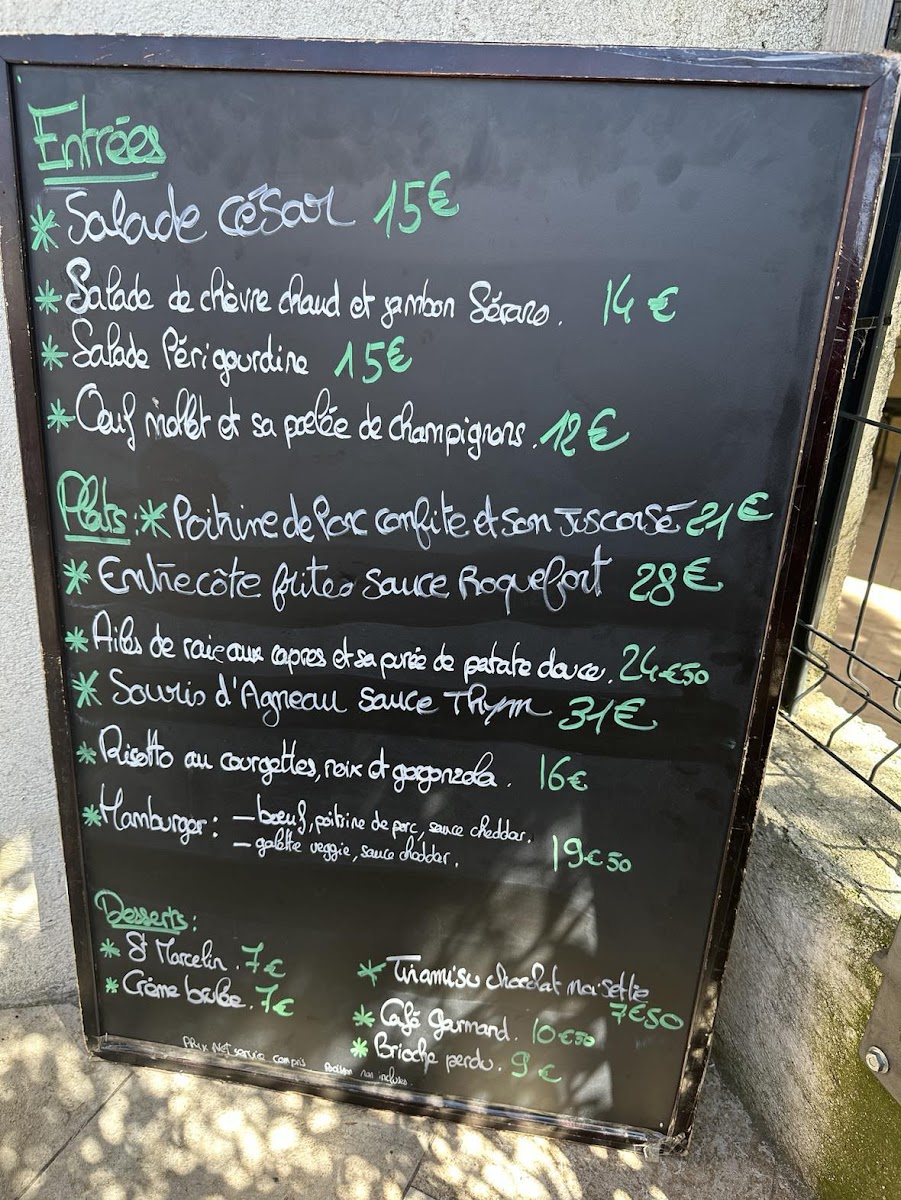 Entrées
* Salade César 15€
* Salade de chèvre chaud et jambon Sérano. 14€
* Salade Périgourdine 15€
* Oeuf mollet et sa poêlée de champignons. 12€
Plats: * Poitrine de Porc confite et son jus corsé 21€
* Entrecôte frites sauce Roquefort 28€
* Ailes de raie aux capres et sa purée de patate douce. 24€50
* Souris d'Agneau sauce Thym 31€
* Risotto au courgettes, noix et gorgonzola. 16€
* Hamburger: - boeuf, poitrine de porc, sauce cheddar.
- galette veggie, sauce cheddar. 19€50
Desserts:
* St Marcelin. 7€
* Crème brulée. 7€
* Tiramisu chocolat noisette 7€50
* Café gourmand. 10€50
* Brioche perdu. 9€
Prix Net service compris Boisson non incluses.